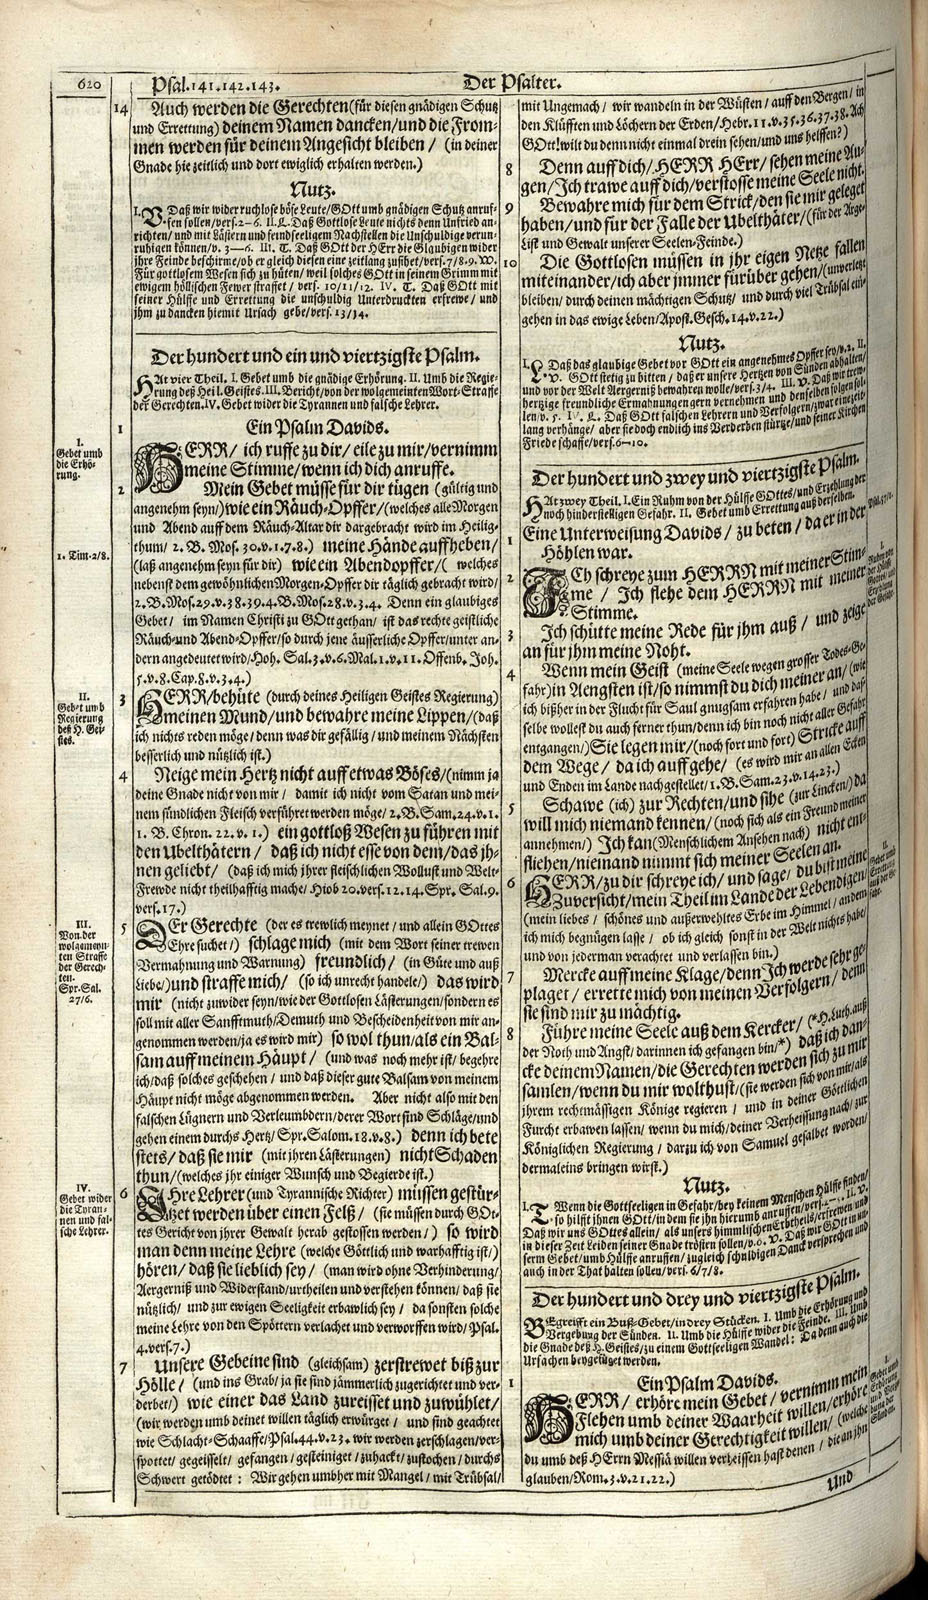 620
Psal. 141. 142. 143.
Der Psalter.
14 Auch werden die Gerechten (für diesen gnädigen Schutz
und Errettung) deinem Namen dancken/und die From-
men werden für deinem Angesicht bleiben/ (in deiner
Gnade hie zeitlich und dort ewiglich erhalten werden.)
Nutz.
I. V. Daß wir wider ruchlose böse Leute/GOtt umb gnädigen Schutz anruf-
fen sollen/vers. 2-6. II. L. Daß Gottlose Leute nichts denn Unfried an-
richten/und mit Lästern und feindseeligem Nachstellen die Unschuldige verun-
ruhigen können/v. 3-6. III. T. Daß GOtt der HErr die Glaubigen wider
ihre Feinde beschirme/ob er gleich diesen eine zeitlang zusihet/vers. 7/8.9. W.
Für gottlosem Wesen sich zu hüten/ weil solches GOtt in seinem Grimm mit
ewigem höllischen Fewer straffet/ vers. 10/11/12. IV. T. Daß GOtt mit
seiner Hülffe und Errettung die unschuldig Unterdruckten erfrewe/ und
jhm zu dancken hiemit Ursach gebe/vers. 13/14.
Der hundert und ein und viertzigste Psalm.
HAt vier Theil. I. Gebet umb die gnädige Erhörung. II. Umb die Regie-
rung deß Heil. Geistes. III. Bericht/von der wolgemeinten Wort-Straffe
der Gerechten. IV. Gebet wider die Tyrannen und falsche Lehrer.
1 Ein Psalm Davids.
I.
Gebet umb
die Erhö-
rung.
HERR/ ich ruffe zu dir/ eile zu mir/vernimm
meine Stimme/wenn ich dich anruffe.
2 Mein Gebet müsse für dir tügen (gültig und
angenehm seyn/) wie ein Räuch-Opffer/(welches alle Morgen
und Abend auff dem Räuch-Altar dir dargebracht wird im Heilig-
thum/ 2. B. Mos. 30. v. 1. 7. 8.) meine Hände auffheben/
1. Tim. 2/8.
(laß angenehm seyn für dir) wie ein Abendopffer/( welches
nebenst dem gewöhnlichen Morgen-Opffer dir täglich gebracht wird/
2. B. Mos. 29. v. 38. 39. 4. B. Mos. 28. v. 3. 4. Denn ein glaubiges
Gebet/ im Namen Christi zu GOtt gethan/ ist das rechte geistliche
Räuch-und Abend-Opffer/so durch jene äusserliche Opffer/unter an-
dern angedeutet wird/Hoh. Sal. 3. v. 6. Mal. 1. v. 11. Offenb. Joh.
5. v. 8. Cap. 8. v. 3. 4.)
II.
Gebet umb
Regierung
deß H. Gei-
stes.
3 HERR/behüte (durch deines Heiligen Geistes Regierung)
meinen Mund/und bewahre meine Lippen/(daß
ich nichts reden möge/denn was dir gefällig/ und meinem Nächsten
besserlich und nützlich ist.)
4 Neige mein Hertz nicht auff etwas Böses/(nimm ja
deine Gnade nicht von mir/ damit ich nicht vom Satan und mei-
nem sündlichen Fleisch verführet werden möge/ 2. B. Sam. 24. v. 1.
1. B. Chron. 22. v. 1.) ein gottloß Wesen zu führen mit
den Ubelthätern/ daß ich nicht esse von dem/das jh-
nen geliebt/ (daß ich mich jhrer fleischlichen Wollust und Welt-
Frewde nicht theilhafftig mache/ Hiob 20. vers. 12. 14. Spr. Sal. 9.
vers. 17.)
III.
Von der
wolgemeyn-
ten Straffe
der Gerech-
ten.
Spr. Sal.
27/6.
5 DEr Gerechte (der es trewlich meynet/ und allein GOttes
Ehre suchet/) schlage mich (mit dem Wort seiner trewen
Vermahnung und Warnung) freundlich/ (in Güte und auß
Liebe/)und straffe mich/ (so ich unrecht handele/) das wird
mir (nicht zuwider seyn/wie der Gottlosen Lästerungen/sondern es
soll mit aller Sanfftmuth/Demuth und Bescheidenheit von mir an-
genommen werden/ja es wird mir) so wol thun/als ein Bal-
sam auff meinem Häupt/ (und was noch mehr ist/ begehre
ich/daß solches geschehen/ und daß dieser gute Balsam von meinem
Häupt nicht möge abgenommen werden. Aber nicht also mit den
falschen Lügnern und Verleumbdern/derer Wort sind Schläge/und
gehen einem durchs Hertz/Spr. Salom. 18. v. 8.) denn ich bete
stets/ daß sie mir (mit jhren Lästerungen) nicht Schaden
thun/(welches jhr einiger Wunsch und Begierde ist.)
IV.
Gebet wider
die Tyran-
nen und fal-
sche Lehrer.
6 IHre Lehrer (und Tyrannische Richter) müssen gestür-
tzet werden über einen Felß/ (sie müssen durch GOt-
tes Gericht von jhrer Gewalt herab gestossen werden/) so wird
man denn meine Lehre (welche Göttlich und warhafftig ist/)
hören/ daß sie lieblich sey/ (man wird ohne Verhinderung/
Aergerniß und Widerstand/urtheilen und verstehen können/ daß sie
nützlich/ und zur ewigen Seeligkeit erbawlich sey/ da sonsten solche
meine Lehre von den Spöttern verlachet und verworffen wird/Psal.
4. vers. 7.)
7 Unsere Gebeine sind (gleichsam) zerstrewet biß zur
Hölle/ (und ins Grab/ja sie sind jämmerlich zugerichtet und ver-
derbet/) wie einer das Land zureisset und zuwühlet/
(wir werden umb deinet willen täglich erwürget/ und sind geachtet
wie Schlacht-Schaaffe/Psal. 44. v. 23. wir werden zerschlagen/ver-
spottet/ gegeisselt/ gefangen/gesteiniget/zuhackt/zustochen/durchs
Schwert getödtet: Wir gehen umbher mit Mangel/mit Trübsal/
mit Ungemach/ wir wandeln in der Wüsten/auff den Bergen/in
den Klüfften und Löchern der Erden/Hebr. 11. v. 35. 36. 37. 38. Ach
GOtt! wilt du denn nicht einmal drein sehen/und uns helffen?)
8 Denn auff dich/HERR HErr/ sehen meine Au-
gen/Ich trawe auff dich/verstosse meine Seele nicht.
9 Bewahre mich für dem Strick/den sie mir geleget
haben/und für der Falle der Ubelthäter/(für der Arge-
List und Gewalt unserer Seelen-Feinde.)
10 Die Gottlosen müssen in jhr eigen Netze fallen
miteinander/ich aber jmmer fürüber gehen/(unverletzt
bleiben/durch deinen mächtigen Schutz/ und durch viel Trübsal ein-
gehen in das ewige Leben/Apost. Gesch. 14. v. 22.)
Nutz.
I. L. Daß das glaubige Gebet vor GOtt ein angenehmes Opffer sey/v. 2. II.
V. GOtt stetig zu bitten/ daß er unsere Hertzen von Sünden abhalten/
und vor der Welt Aergerniß bewahren wolle/vers. 3/4. III. V. Daß wir trew-
hertzige freundliche Ermahnungen gern vernehmen und denselben folgen sol-
len/v. 5. IV. L. Daß GOtt falschen Lehrern und Verfolgern/zwar eine zeit-
lang verhänge/ aber sie doch endlich ins Verderben stürtze/und seiner Kirchen
Friede schaffe/vers. 6-10.
Der hundert und zwey und viertzigste Psalm.
HAt zwey Theil. I. Ein Ruhm von der Hülffe GOttes/und Erzehlung der
noch hinderstelligen Gefahr. II. Gebet umb Errettung auß derselben.
1 Eine Unterweisung Davids/ zu beten/ da er in der
Höhlen war.
2 ICh schreye zum HERRN mit meiner Stim-
me/ Ich flehe dem HERRN mit meiner
Stimme.
3 Ich schütte meine Rede für jhm auß/ und zeige
an für jhm meine Noht.
4 Wenn mein Geist (meine Seele wegen grosser Todes-Ge-
fahr)in Aengsten ist/so nimmst du dich meiner an/(wie
ich bißher in der Flucht für Saul gnugsam erfahren habe/ und daß
selbe wollest du auch ferner thun/denn ich bin noch nicht aller Gefahr
entgangen/)Sie legen mir/(noch fort und fort) Stricke auff
dem Wege/ da ich auff gehe/ (es wird mir an allen Ecken
und Enden im Lande nachgestellet/1. B. Sam. 23. v. 14. 23.)
5 Schawe (ich) zur Rechten/und sihe (zur Lincken/) da
will mich niemand kennen/(noch sich als ein Freund meiner
annehmen/) Ich kan(Menschlichem Ansehen nach) nicht ent-
fliehen/niemand nimmt sich meiner Seelen an.
6 HERR/zu dir schreye ich/ und sage/ du bist meine
Zuversicht/mein Theil im Lande der Lebendigen/
(mein liebes/ schönes und außerwehltes Erbe im Himmel/an dem
ich mich begnügen lasse/ ob ich gleich sonst in der Welt nichts habe/
und von jederman verachtet und verlassen bin.)
7 Mercke auff meine Klage/denn Ich werde sehr ge-
plaget/ errette mich von meinen Verfolgern/ denn
sie sind mir zu mächtig.
8 Führe meine Seele auß dem Kercker/ (*H. Luth. auß
der Noth und Angst/darinnen ich gefangen bin/*) daß ich dan-
cke deinem Namen/die Gerechten werden sich zu mir
samlen/wenn du mir wolthust/(sie werden sich von mir/als
jhrem rechtmässigen Könige regieren/ und in deiner Göttlichen
Furcht erbawen lassen/ wenn du mich/deiner Verheissung nach/zur
Königlichen Regierung/ darzu ich von Samuel gesalbet worden/
dermaleins bringen wirst.)
Nutz.
I. T. Wenn die Gottseeligen in Gefahr/bey keinem Menschen Hülffe finden/
so hilfft jhnen GOtt/in dem sie jhn hierumb anruffen/
Daß wir uns GOttes allein/ als unsers himmlischen Erbtheils/erfrewen und
in dieser Zeit Leiden seiner Gnade trösten sollen/v. 6. V. Daß wir GOtt in un-
serm Gebet/umb Hülffe anruffen/zugleich schuldigen Danck versprechen und
auch in der That halten sollen/vers. 6/7/8.
Der hundert und drey und viertzigste Psalm.
BEgreifft ein Buß-Gebet/in drey Stücken. I. Umb die Erhörung und
Vergebung der Sünden. II. Umb die Hülffe wider die Feinde. III. Umb
die Gnade deß H. Geistes/zu einem Gottseeligen Wandel: Da denn auch die
Ursachen beygefüget werden.
1 Ein Psalm Davids.
HERR/ erhöre mein Gebet/ vernimm mein
Flehen umb deiner Waarheit willen/erhöre
mich umb deiner Gerechtigkeit willen/ (welche
du umb deß HErrn Messiä willen verheissen hast denen/ die an jhn
glauben/Rom. 3. v. 21. 22.)
Und